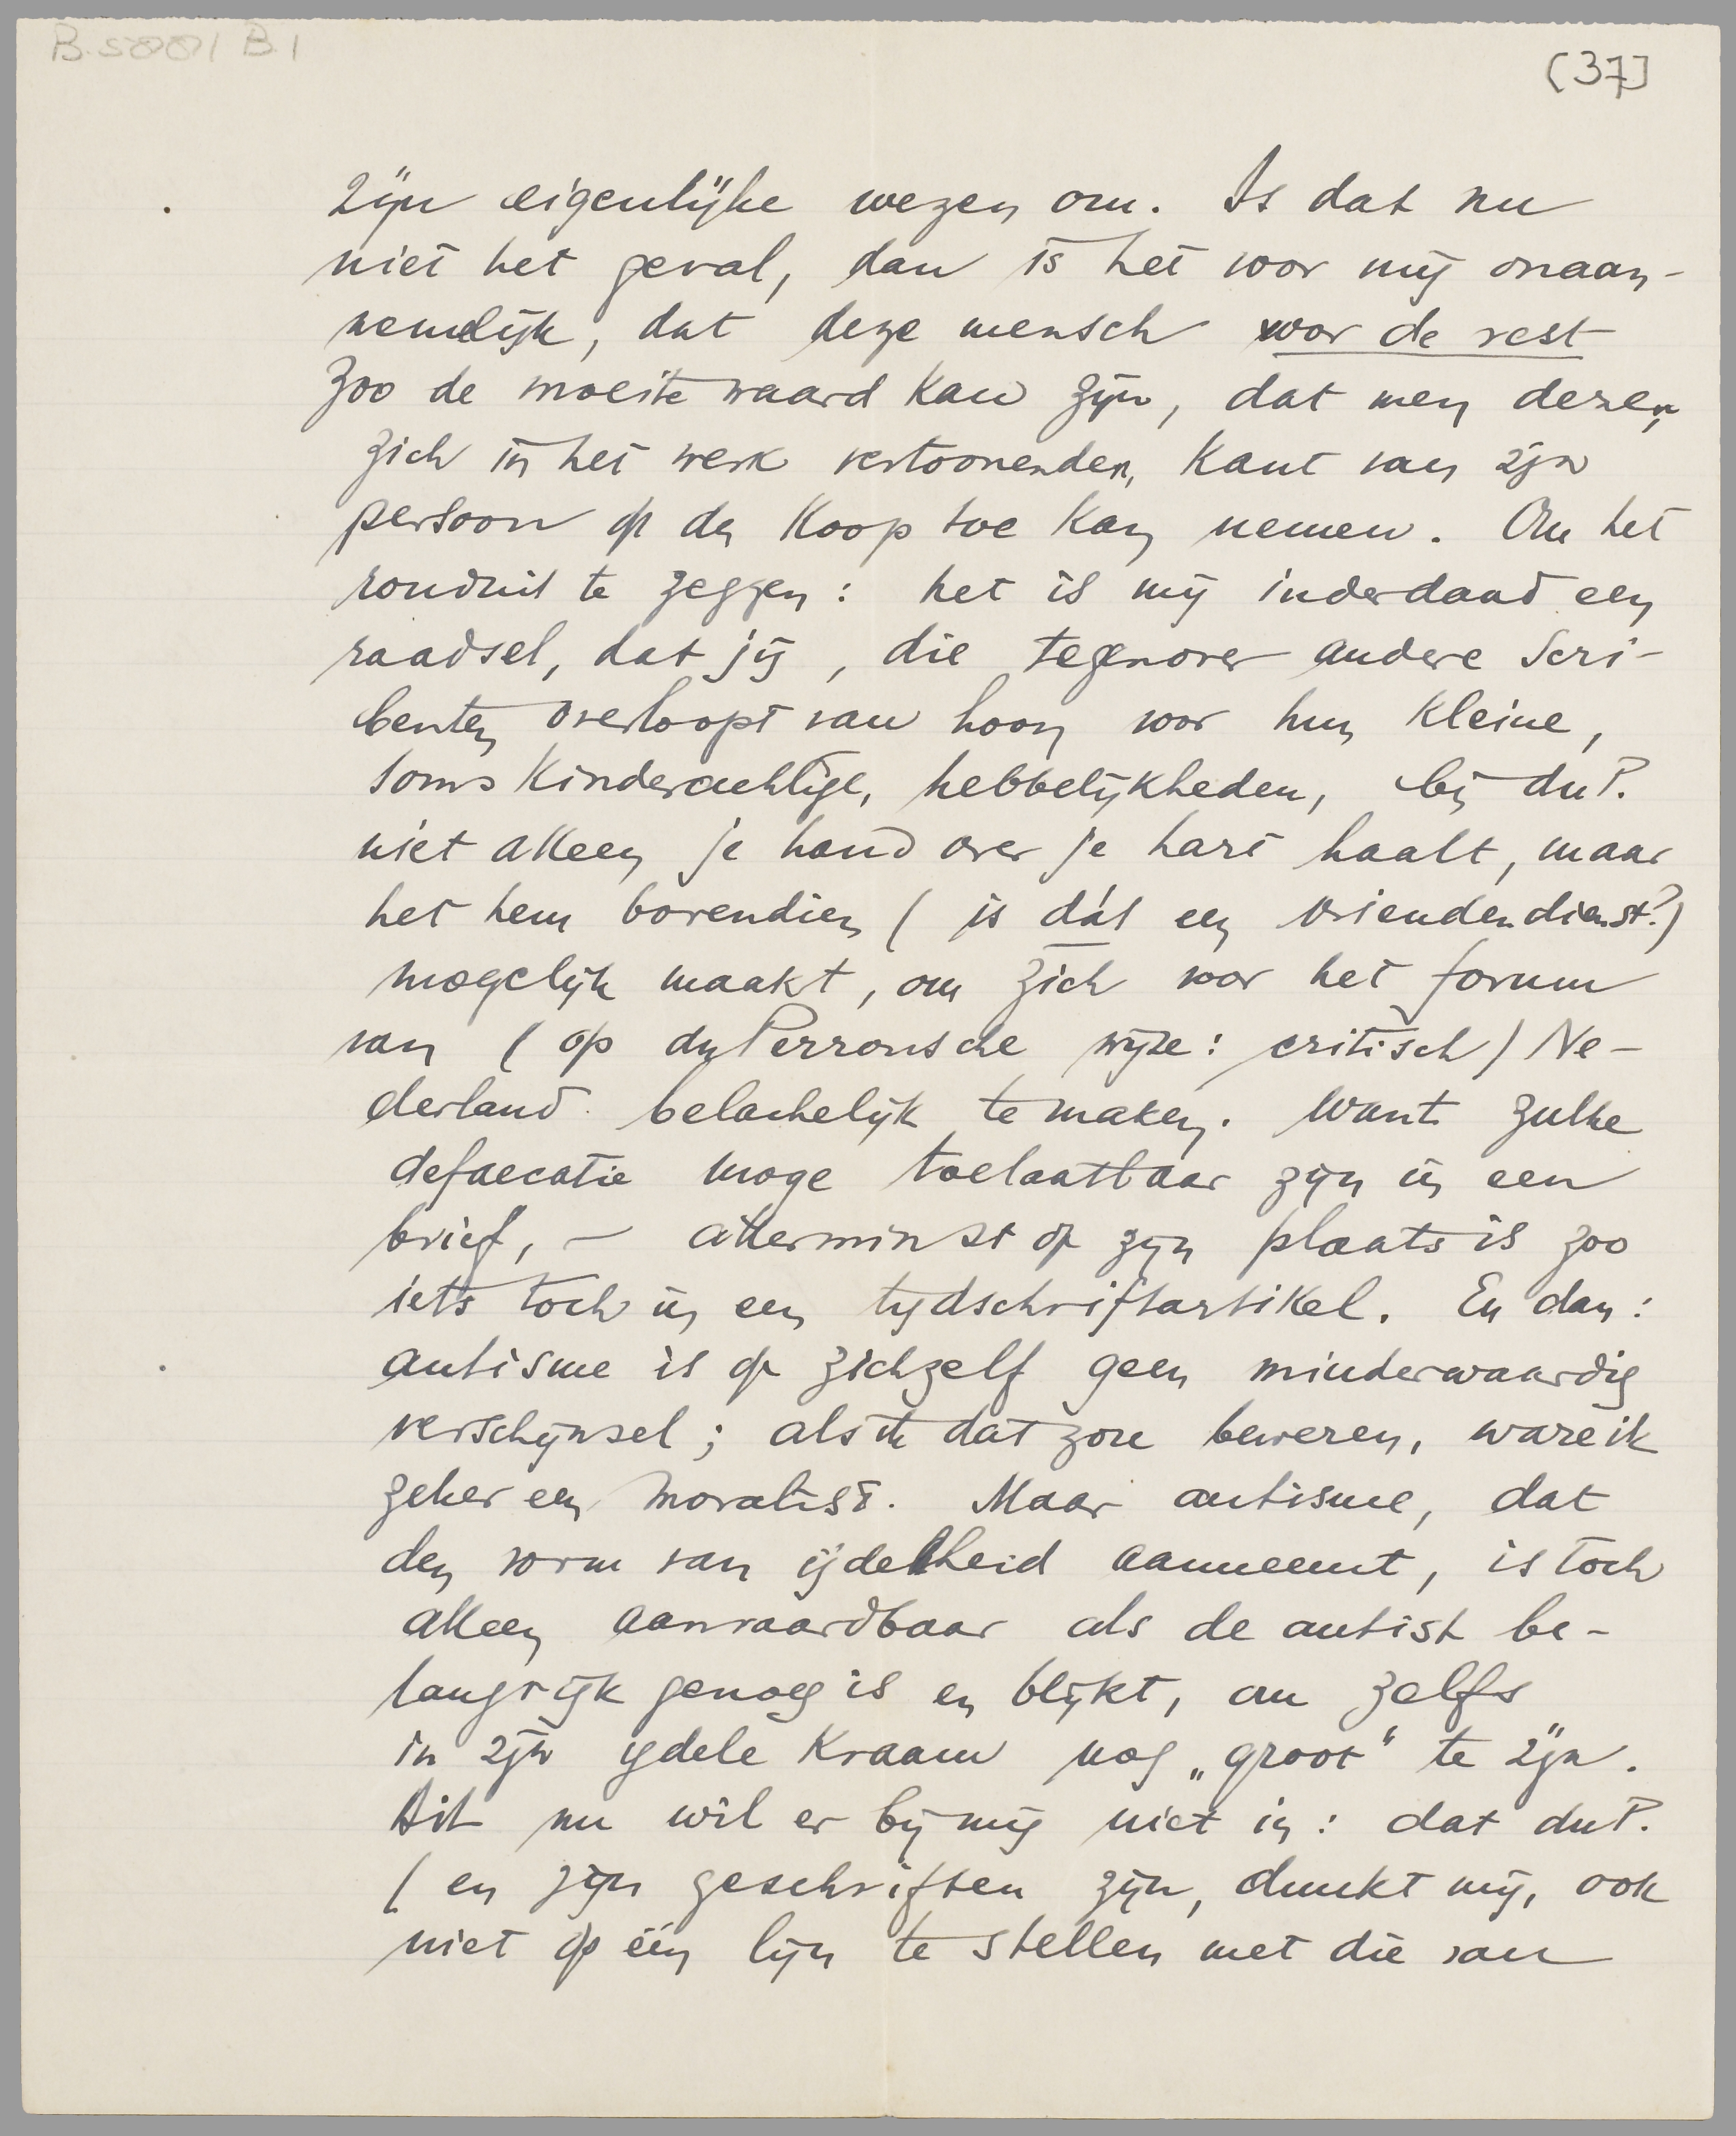 B.5001 B.1
(37]
zijn eigenlijke wezen om. Is dat nu
niet het geval, dan is het voor mij onaan-
nemelijk, dat deze mensch voor de rest
zoo de moeite waard kan zijn, dat men dezen,
zich in het werk vertoonenden, kant van zijn
persoon op den koop toe kan nemen. Om het
ronduit te zeggen: het is mij inderdaad een
raadsel, dat jij, die tegenover andere scri-
benten overloopt van hoon voor hun kleine,
soms kinderachtige, hebbelijkheden, bij duP.
niet alleen je hand over je hart haalt, maar
het hem bovendien (is dát een vriendendienst?)
mogelijk maakt, om zich voor het forum
van (op duPerronsche wijze: critisch) Ne-
derland belachelijk te maken. Want zulke
defaecatie moge toelaatbaar zijn in een
brief, – allerminst op zijn plaats is zoo
iets toch in een tijdschriftartikel. En dan:
autisme is op zichzelf geen minderwaardig
verschijnsel; als ik dat zou beweren, ware ik
zeker een moralist. Maar autisme, dat
den vorm van ijdelheid aanneemt, is toch
alleen aanvaardbaar als de autist be-
langrijk genoeg is en blijkt, om zelfs
in zijn ijdele kraam nog „groot" te zijn.
Dit nu wil er bij mij niet in: dat duP.
(en zijn geschriften zijn, dunkt mij, ook
niet op één lijn te stellen met die van